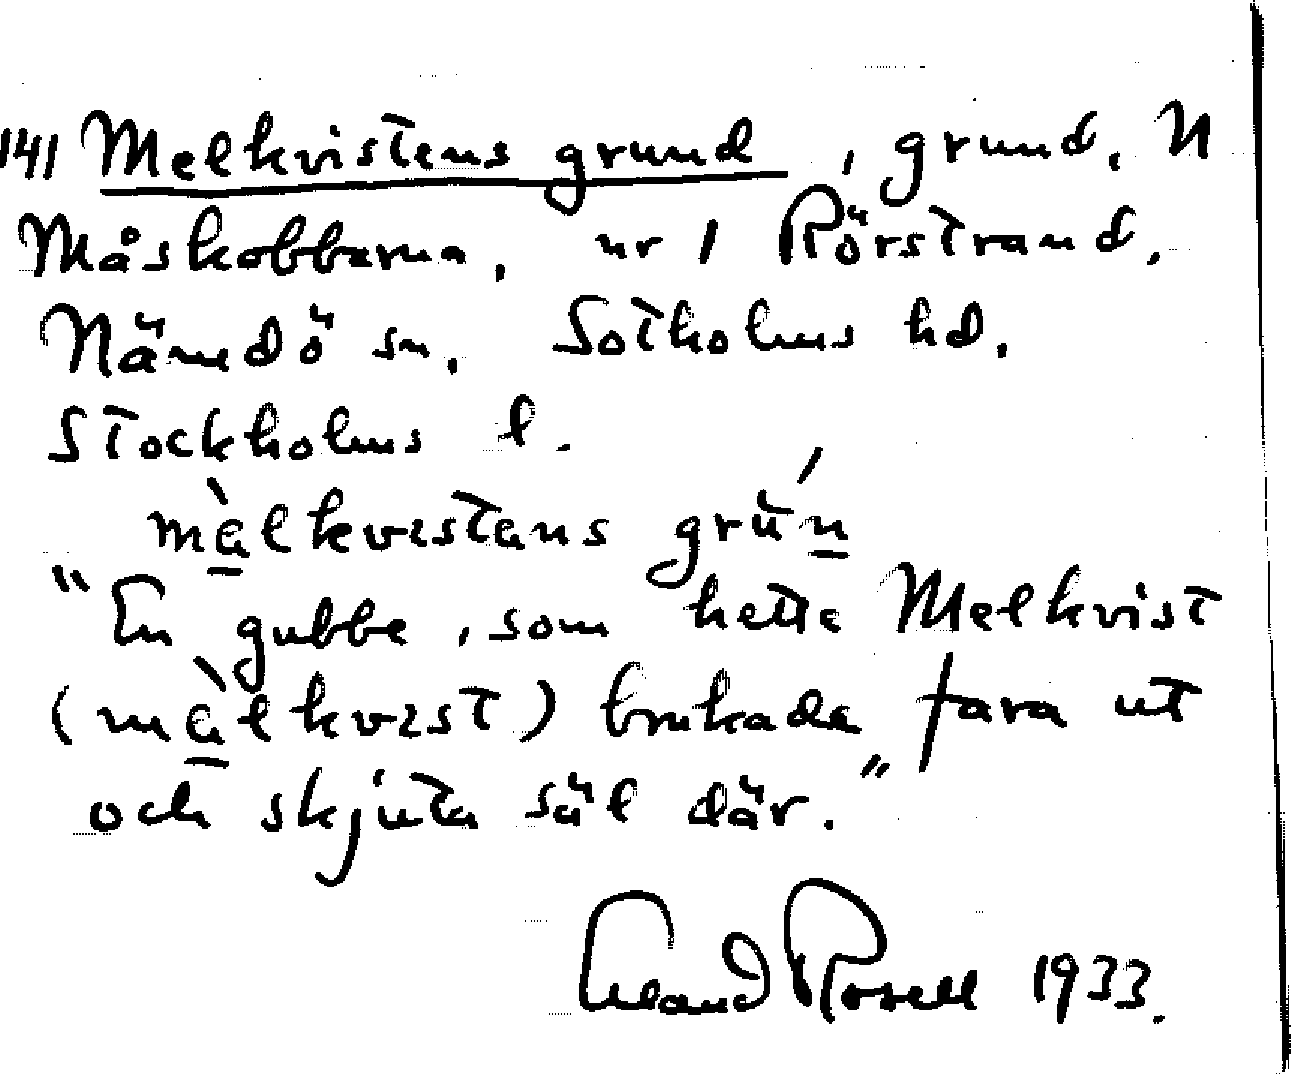 141 Melkvistens grund, grund, N
Måskobbarna, nr 1 Rörstrand,
Nämdö sn, Sotholms hd,
Stockholms l.
mὰlkvıstans grǘn
"En gubbe, som hette Melkvist
(mὰlkvıst) brukade fara ut
och skjuta säl där."
Erland Rosell 1933.